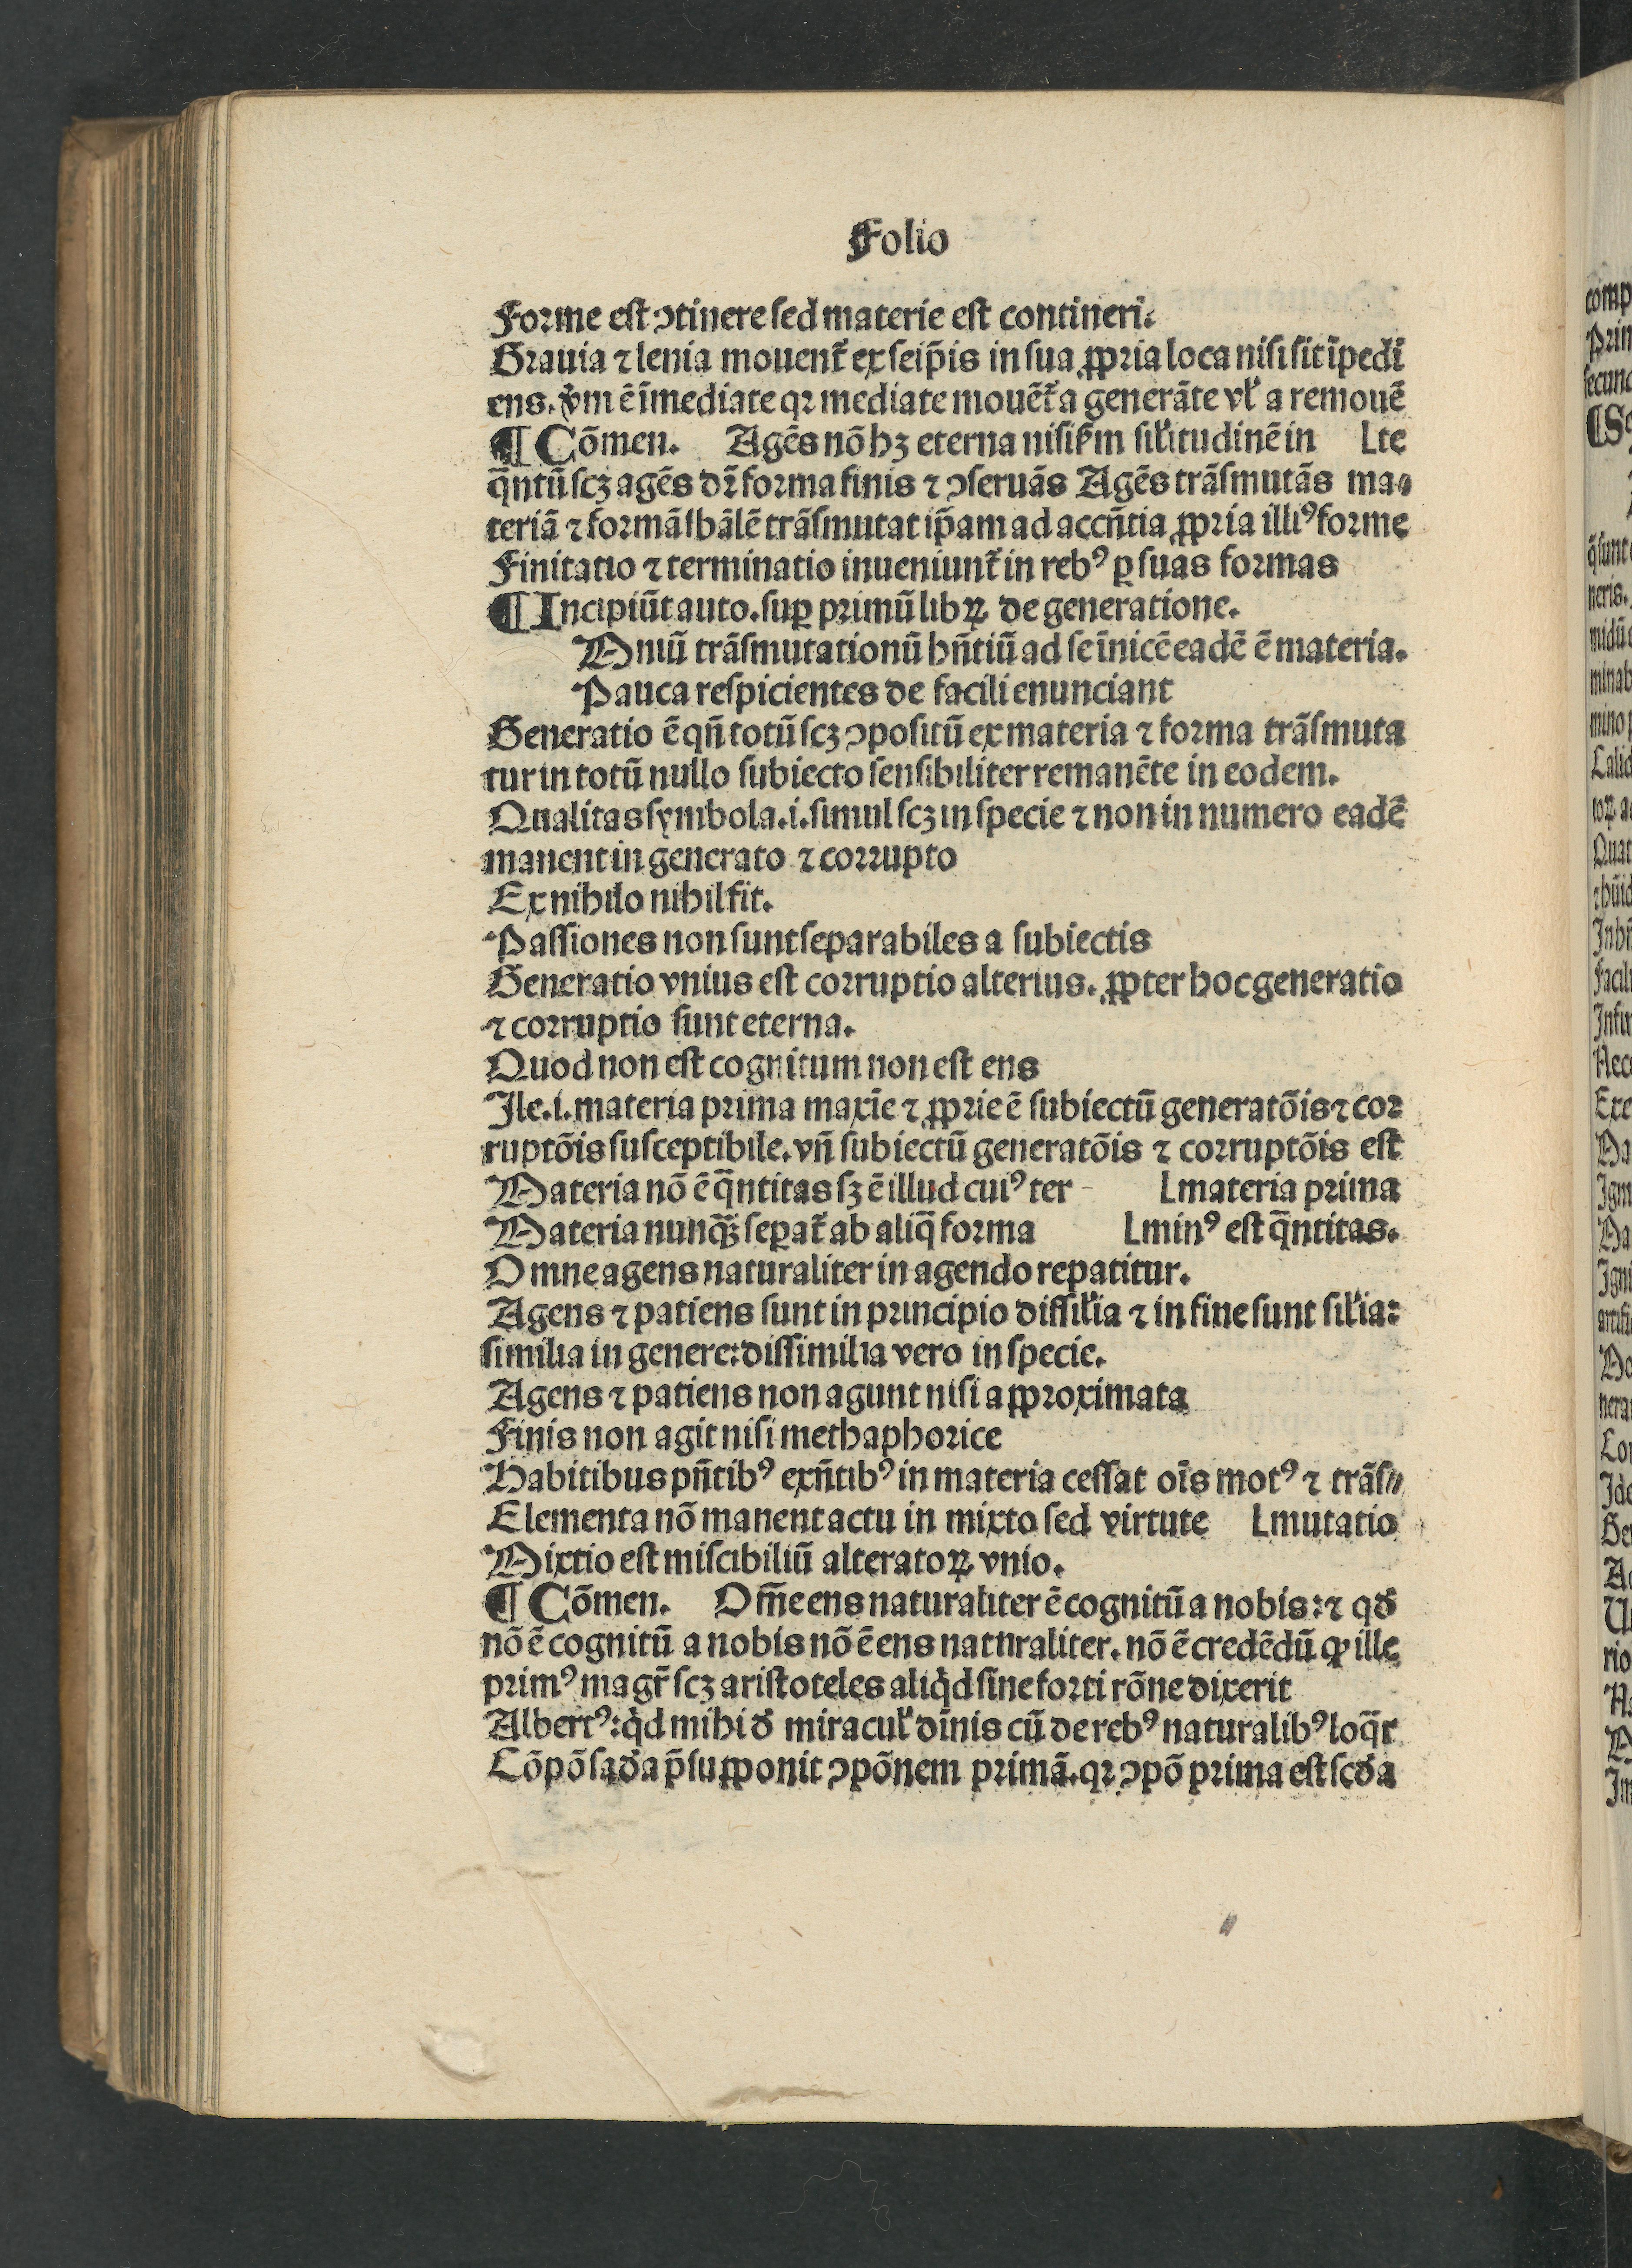 Folio
Forme eſt ↄtinere ſed materie eſt contineri.
Grauia ⁊ lenia mouent̃ ex ſeip̄is in ſua ꝓpria loca niſi ſit īpedi
ens. v̓m ē īmediate qꝛ mediate mouēt̃ a generāte vl̓ a remouē
¶ Cōmen. Agēs nō hꝫ eterna niſi ẜm ſil̓itudinē in Lte
q̄ntū ſcꝫ agēs dr̄ forma finis ⁊ ↄſeruās Agēs trāſmutās ma-
teriā ⁊ formā ſbālē trāſmutat ip̄am ad accn̄tia ꝓpria illiꝰ forme
Finitatio ⁊ terminatio inueniunt̃ in rebꝰ ꝑ ſuas formas
¶ Incipiūt auto. ſuꝑ primū libꝝ de generatione.
Oniū trāſmutationū hn̄tiū ad ſe īnicē eadē ē materia.
Pauca reſpicientes de facili enunciant
Generatio ē qn̄ totū ſcꝫ ↄpoſitū ex materia ⁊ forma trāſmuta
tur in totū nullo ſubiecto ſenſibiliter remanēte in eodem.
Qualitas ſymbola .i. ſimul ſcꝫ in ſpecie ⁊ non in numero eadē
manent in generato ⁊ corrupto
Ex nihilo nihil fit.
Paſſiones non ſunt ſeparabiles a ſubiectis
Generatio vnius eſt corruptio alterius. ꝓpter hoc generatio
⁊ corruptio ſunt eterna.
Quod non eſt cognitum non eſt ens
Ile .i. materia prima maxīe ⁊ ꝓprie ē ſubiectū generatōis ⁊ cor
ruptōis ſuſceptibile. vn̄ ſubiectū generatōis ⁊ corruptōis eſt
Materia nō ē q̄ntitas ſꝫ ē illud cuiꝰ ter- Lmateria prima
Materia nunq̄ꝫ ſeꝑat̃ ab aliq̄ forma Lminꝰ eſt q̄ntitas.
Omne agens naturaliter in agendo repatitur.
Agens ⁊ patiens ſunt in principio diſſil̓ia ⁊ in fine ſunt ſil̓ia:
ſimilia in genere: diſſimilia vero in ſpecie.
Agens ⁊ patiens non agunt niſi aꝓproximata
Finis non agit niſi methaphorice
Habitibus pn̄tibꝰ exn̄tibꝰ in materia ceſſat oīs motꝰ ⁊ trāſ-
Elementa nō manent actu in mixto ſed virtute Lmutatio
Mixtio eſt miſcibiliū alteratoꝝ vnio.
¶ Cōmen. Om̄e ens naturaliter ē cognitū a nobis: ⁊ qđ
nō ē cognitū a nobis nō ē ens natnraliter. nō ē credēdū ꝙ ille
primꝰ magr̄ ſcꝫ ariſtoteles aliq̇d ſine forti rōne dixerit
Albertꝰ: q̇d mihi đ miracul̓ dīnis cū de rebꝰ naturalibꝰ loq̄r
Cōpō ſađa p̄ſuꝓponit ↄpōnem primā. qꝛ ↄpō prima eſt ſcđa